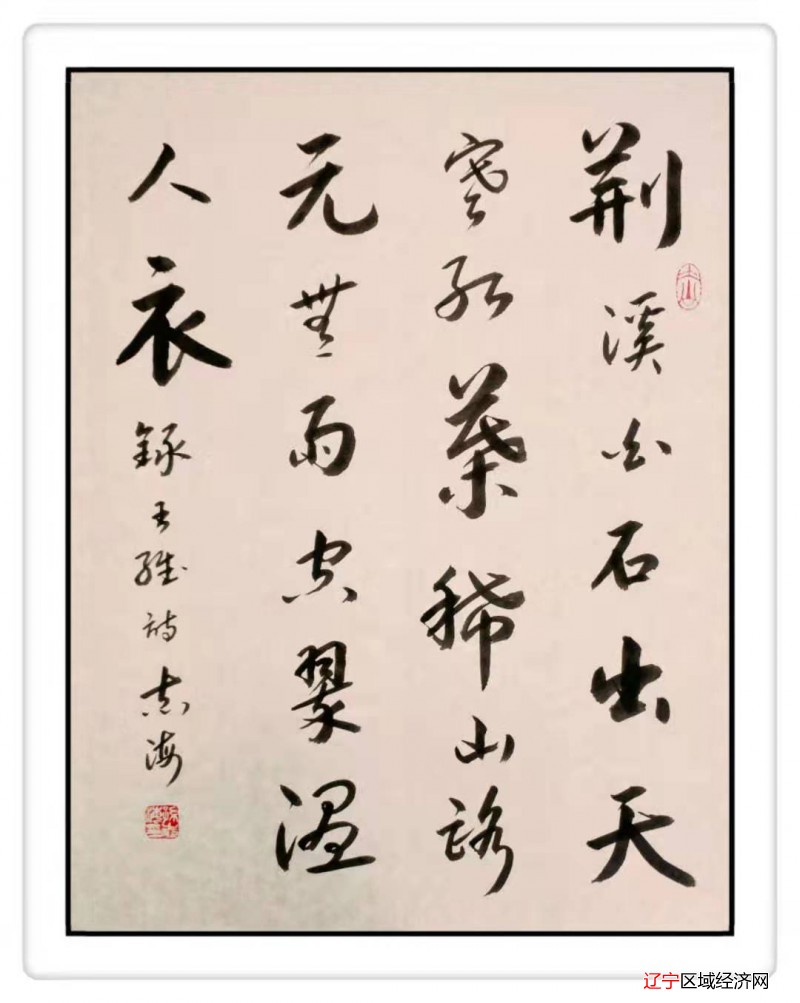 荆溪白石出天
寒红葉稀山路
元無雨空翠湿
人衣
錄王維詩志海
辽宁区域经济网